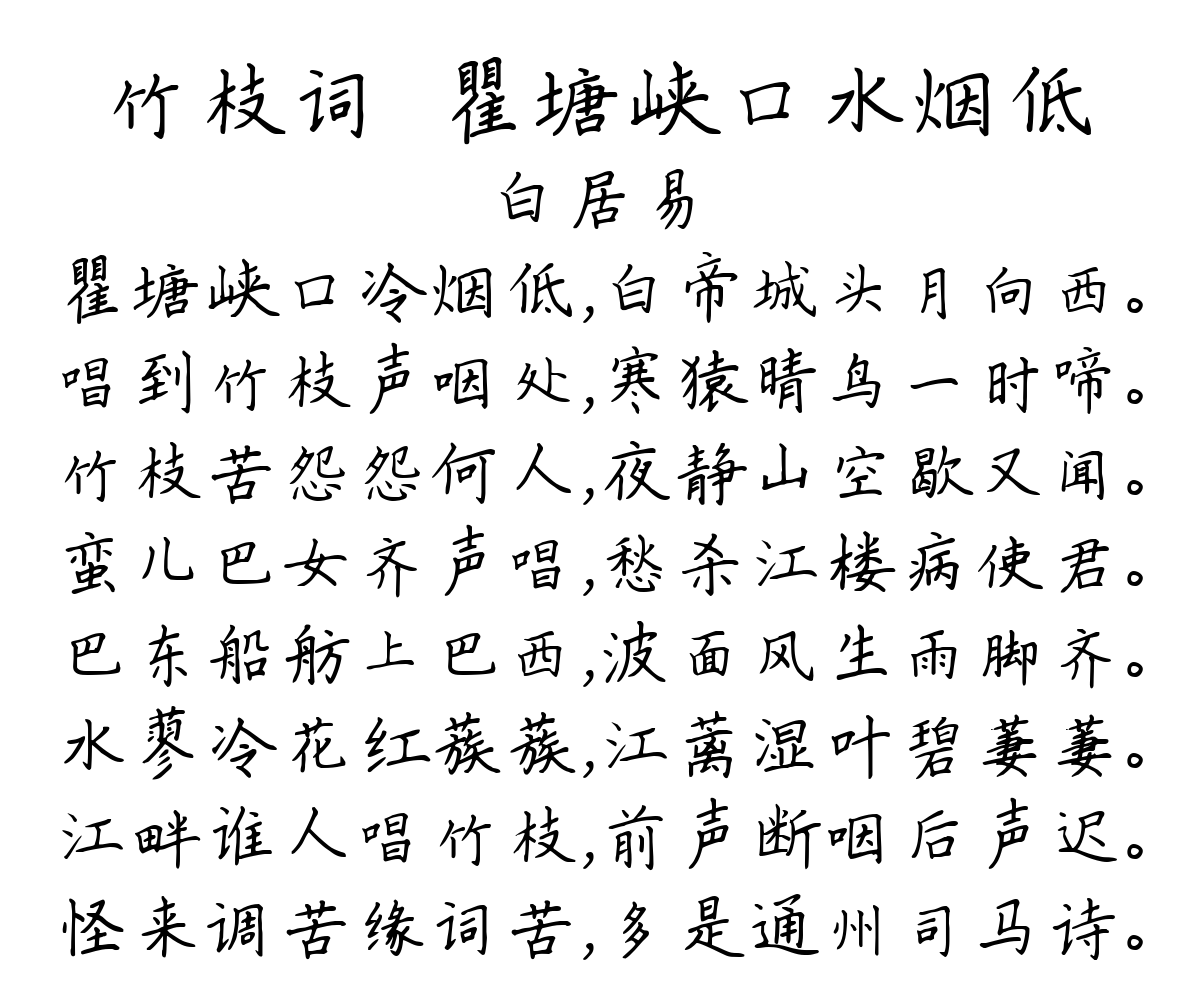 竹枝词 瞿塘峡口水烟低
白居易
瞿塘峡口冷烟低,白帝城头月向西。
唱到竹枝声咽处,寒猿晴鸟一时啼。
竹枝苦怨怨何人,夜静山空歇又闻。
蛮儿巴女齐声唱,愁杀江楼病使君。
巴东船舫上巴西,波面风生雨脚齐。
水蓼冷花红蔟蔟,江蓠湿叶碧萋萋。
江畔谁人唱竹枝,前声断咽后声迟。
怪来调苦缘词苦,多是通州司马诗。